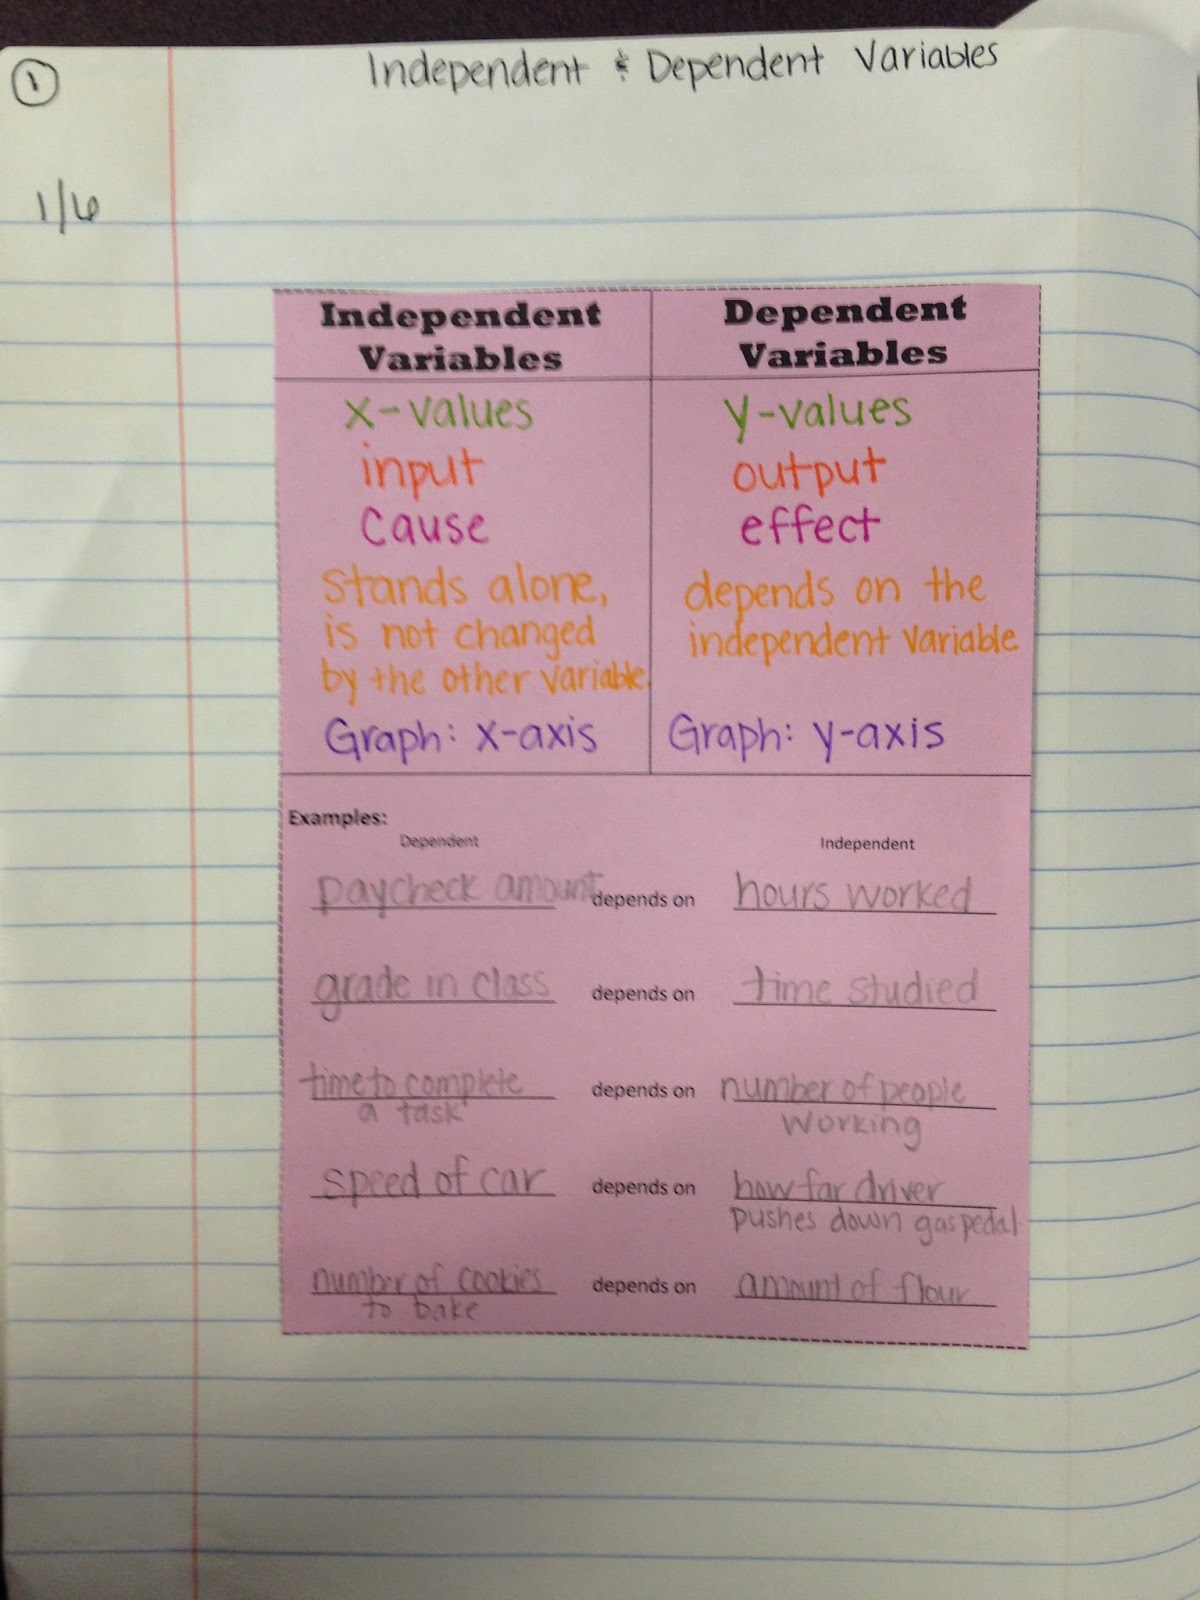 ①
Independent & Dependent Variables
1/6
Independent Variables
x-values
input
cause
stands alone,
is not changed
by the other variable.
Graph: x-axis
Dependent Variables
y-values
output
effect
depends on the
independent variable.
Graph: y-axis
Examples:
Dependent Independent
paycheck amount depends on hours worked
grade in class depends on time studied
time to complete depends on number of people
a task working
speed of car depends on how far driver
pushes down gas pedal
number of cookies depends on amount of flour
to bake